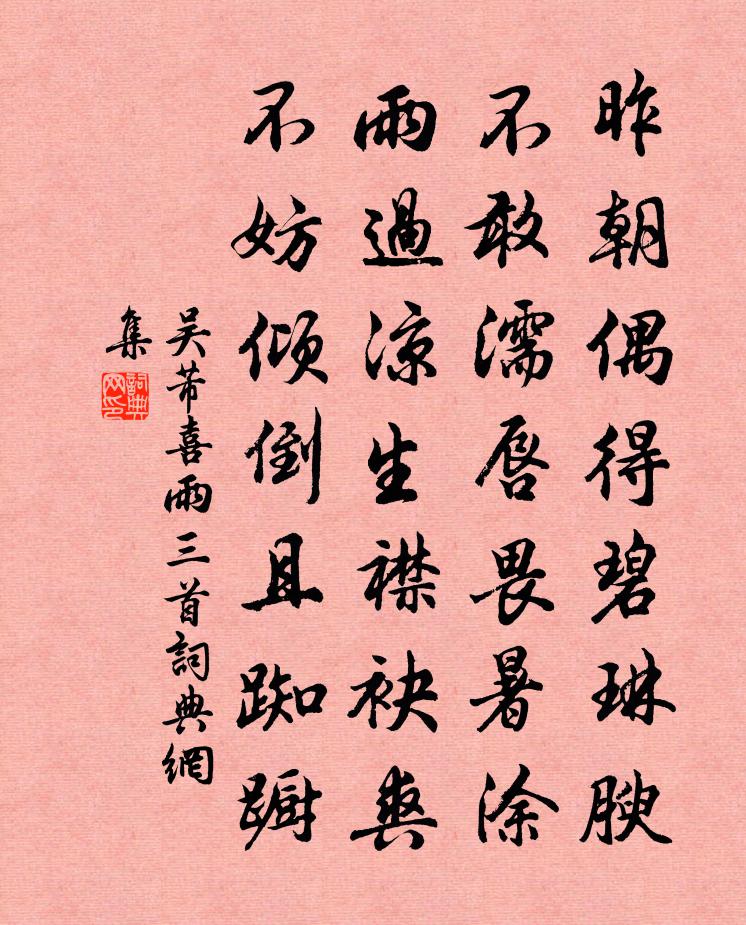 昨朝偶得碧琳腴
不敢濡唇畏暑涂
雨過凉生襟袂爽
不妨倾倒且踟蹰
吴芾喜雨三首詞典網
集
詞典
网印